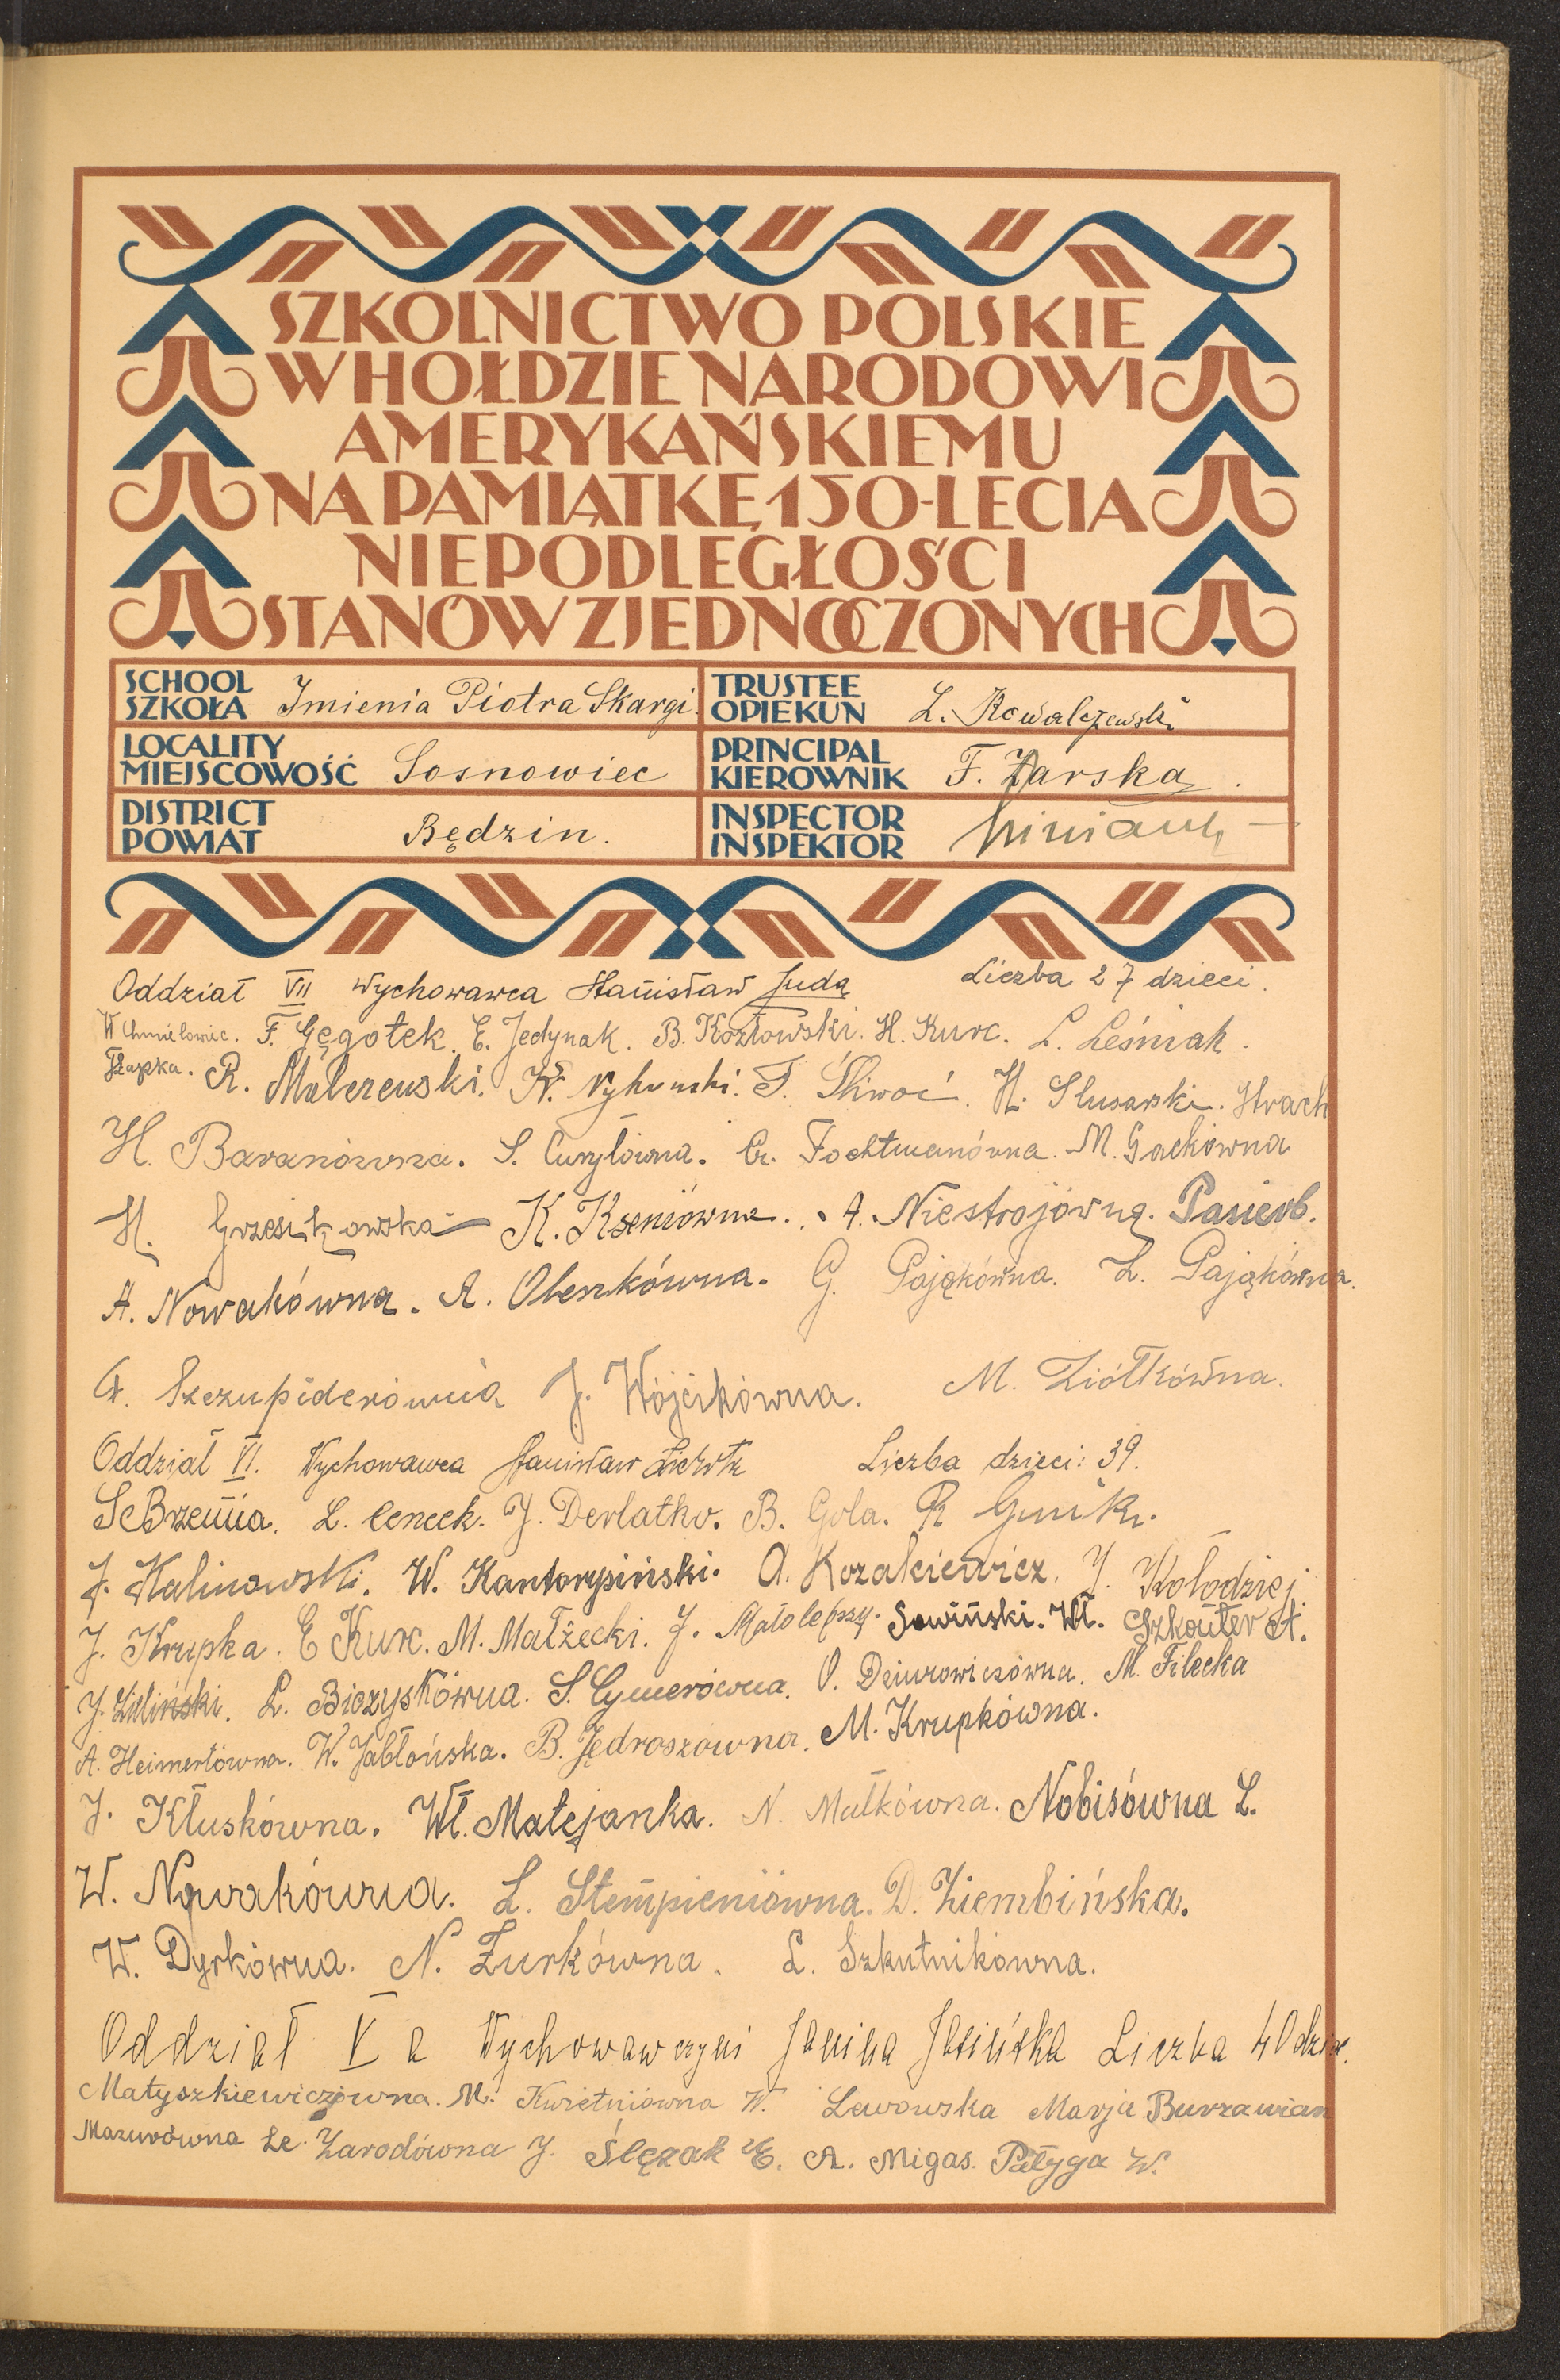 SZKOLNICTWO POLSKIE
W HOŁDZIE NARODOWI
AMERYKAŃSKIEMU
NA PAMIĄTKĘ 150-LECIA
NIEPODLEGŁOŚCI
STANÓW ZJEDNOCZONYCH
SCHOOL
SZKOŁA Imienia Piotra Skargi
TRUSTEE
OPIEKUN L. Kowalczewski
LOCALITY
MIEJSCOWOŚĆ Sosnowiec
PRINCIPAL
KIEROWNIK F. Żarska
DISTRICT
POWIAT Będzin.
INSPECTOR
INSPEKTOR
Oddział VII Wychowawca Stanisław Juda Liczba 27 dzieci.
W Chmielowiec. F. Gęgotek. E. Jedynak. B. Kozłowski. H. Kurc. L. Leśniak.
Łapka. R. Malczewski. T. Śliwoć. H. Slusarski. Strach
H. Baranówna. S. Curyłówna. M. Gackówna
H. Grzesikowska K. Kseniówna. A. Niestrojówna. Pasierb.
A. Nowakówna. A. Oleszkówna. G. Pająkówna. L. Pająkówna.
Szczupiderówna J. Wójcikówna. M. Ziółkówna.
Oddział VI. Wychowawca Stanisław Liczba dzieci: 39.
L. Cencek. J. Derlatko. B. Gola. R
J. Kalinowski. W. Kantorysiński. A. Kozakiewicz. J. Kołodziej
J. Krupka. E Kurc. M. Małżecki. J. Małolepszy. Sowiński. Wł. Szkouter A.
J. Zieliński. L. Biczyskówna. S. Cymerówna. O. Dziurowiczówna. M. Filecka
A. Heimertówna. W. Jabłońska. B. Jędroszówna. M. Krupkówna.
J. Kłuskówna. Wł. Matejanka. N. Małkówna. Nobisówna L.
W. Nowakówna. L. Stempieniówna. D. Ziembińska.
W. Dyrkówna. N. Żurkówna. L. Szkutnikówna.
Oddział V a Wychowawczyni Janina Jasińska Liczba 40 dziec.
Matyszkiewiczówna. M. Kwietniówna W. Lewowska Marja Burzawian
Mazurówna Le. Zarodówna J. Ślęzak E. A. Migas. Pałyga W.